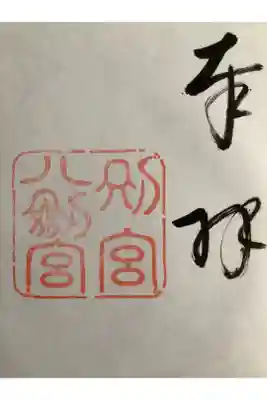 奉拝
別宮
八剣宮